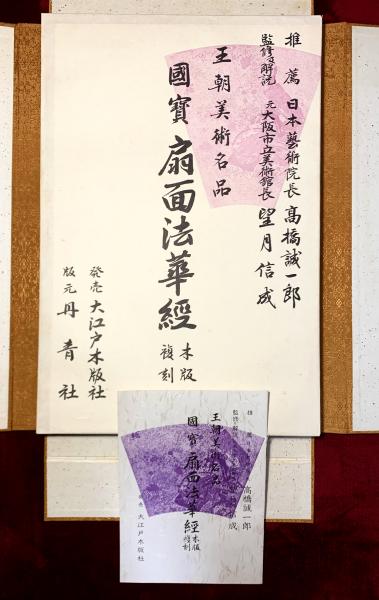 推薦 日本藝術院長 高橋誠一郎
監修及解説 元大阪市立美術館長 望月信成
王朝美術名品
國寳 扇面法華經 木版複刻
発売 大江戸木版社
版元 丹青社
推薦
高橋誠一郎
監修
成
王朝美術名品
國寳 扇面法華經 木版複刻
売 大江戸木版社